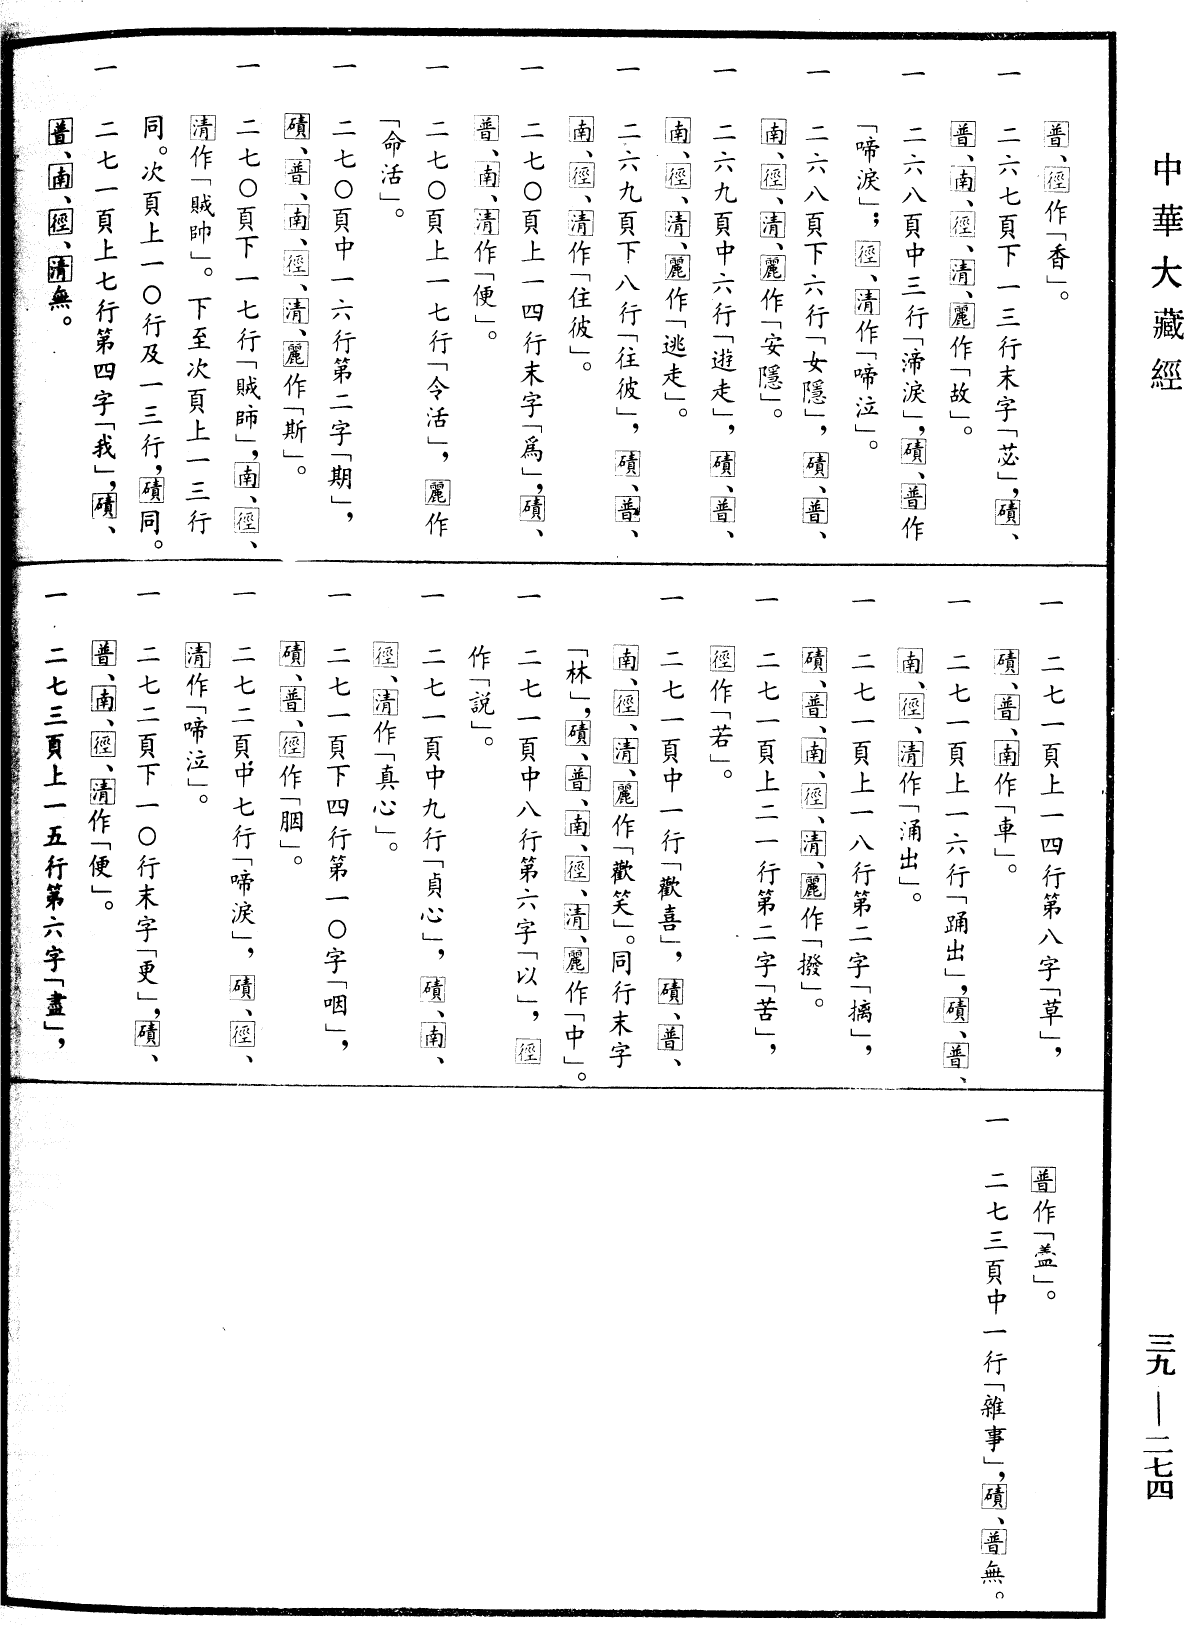 中華大藏經
普、徑作「香」。
一　二六七頁下一三行末字「苾」，磧、
普、南、徑、清、麗作「故」。
一　二六八頁中三行「渧淚」，磧、普作
「啼淚」；徑、清作「啼泣」。
一　二六八頁下六行「女隱」，磧、普、
南、徑、清、麗作「安隱」。
一　二六九頁中六行「遊走」，磧、普、
南、徑、清、麗作「逃走」。
一　二六九頁下八行「往彼」，磧、普、
南、徑、清作「住彼」。
一　二七〇頁上一四行末字「爲」，磧、
普、南、清作「便」。
一　二七〇頁上一七行「令活」，麗作
「命活」。
一　二七〇頁中一六行第二字「期」，
磧、普、南、徑、清、麗作「斯」。
一　二七〇頁下一七行「賊師」，南、徑、
清作「賊帥」。下至次頁上一三行
同。次頁上一〇行及一三行，磧同。
一　二七一頁上七行第四字「我」，磧、
普、南、徑、清無。
一　二七一頁上一四行第八字「草」，
磧、普、南作「車」。
一　二七一頁上一六行「踊出」，磧、普、
南、徑、清作「涌出」。
一　二七一頁上一八行第二字「摛」，
磧、普、南、徑、清、麗作「撥」。
一　二七一頁上二一行第二字「苦」，
徑作「若」。
一　二七一頁中一行「歡喜」，磧、普、
南、徑、清、麗作「歡笑」。同行末字
「林」，磧、普、南、徑、清、麗作「中」。
一　二七一頁中八行第六字「以」，徑
作「說」。
一　二七一頁中九行「貞心」，磧、南、
徑、清作「真心」。
一　二七一頁下四行第一〇字「咽」，
磧、普、徑作「胭」。
一　二七二頁中七行「啼淚」，磧、徑、
清作「啼泣」。
一　二七二頁下一〇行末字「更」，磧、
普、南、徑、清作「便」。
一　二七三頁上一五行第六字「盡」，
普作「盖」。
一　二七三頁中一行「雜事」，磧、普無。
三九—二七四